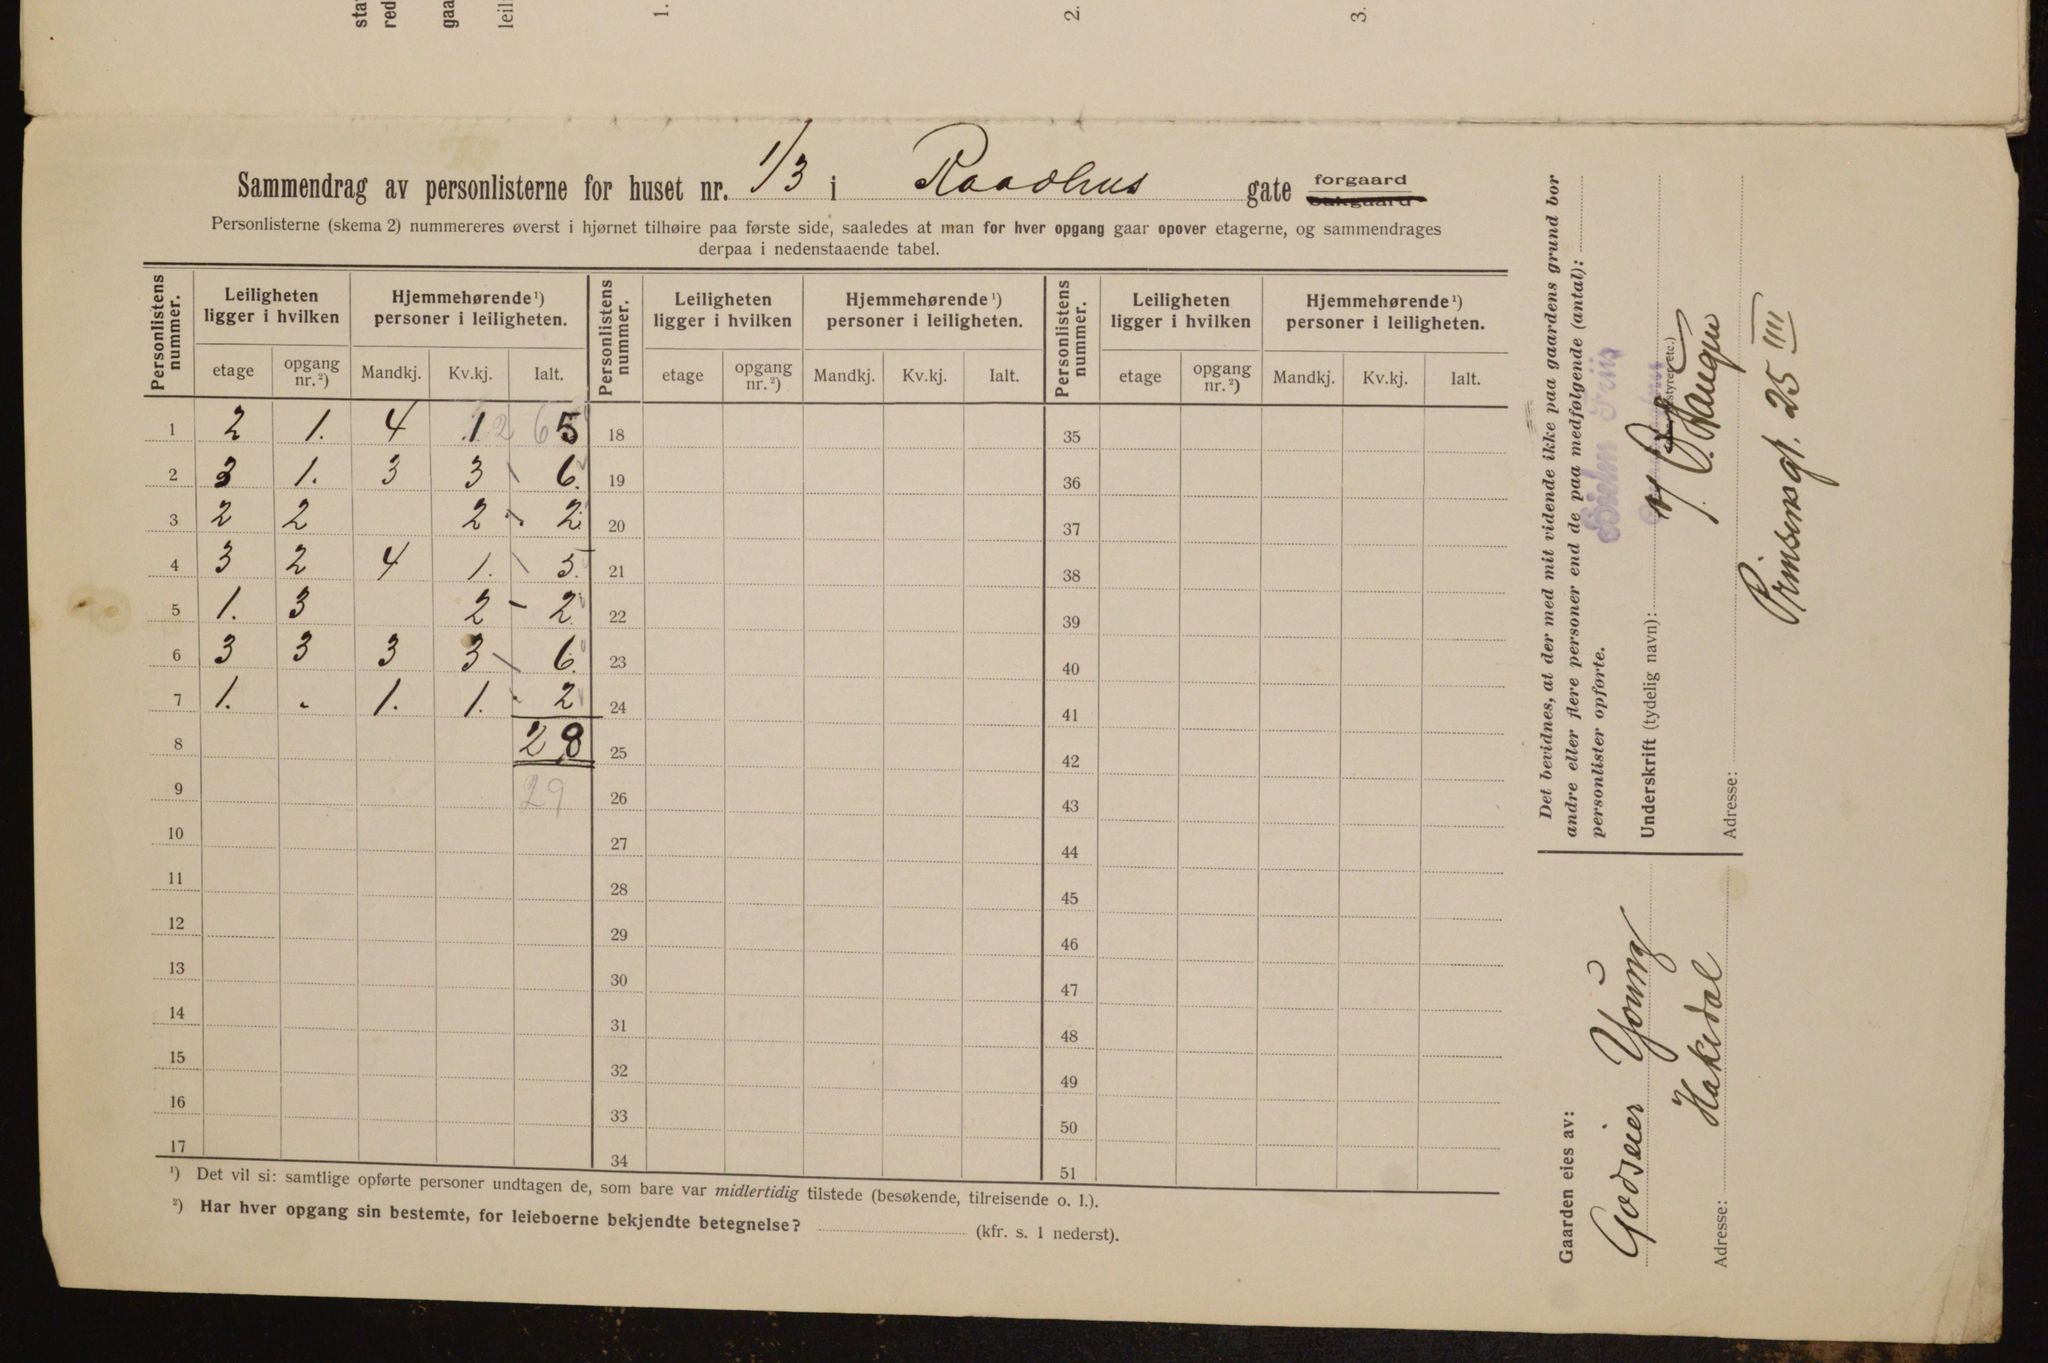 sta
red
gaa
leil
1.
2.
3.
Sammendrag av personlisterne for huset nr. 1/3 i Raadhus gate forgaard
bakgaard
Personlisterne (skema 2) nummereres øverst i hjørnet tilhøire paa første side, saaledes at man for hver opgang gaar opover etagerne, og sammendrages
derpaa i nedenstaaende tabel.
Personlistens nummer. Leiligheten ligger i hvilken Hjemmehørende ¹) personer i leiligheten. Personlistens nummer. Leiligheten ligger i hvilken Hjemmehørende ¹) personer i leiligheten. Personlistens nummer. Leiligheten ligger i hvilken Hjemmehørende ¹) personer i leiligheten.
etage opgang nr. ²) Mandkj. Kv.kj. Ialt. etage opgang nr. ²) Mandkj. Kv.kj. Ialt. etage opgang nr. ²) Mandkj. Kv.kj. Ialt.
1 2 1. 4 1 2 6 5 18 35
2 3 1. 3 3 6. 19 36
3 2 2 2 2. 20 37
4 3 2 4 1. 5. 21 38
5 1. 3 2 - 2 22 39
6 3 3 3 3 6. 23 40
7 1. . 1. 1. - 2 24 41
8 28 25 42
9 29 26 43
10 27 44
11 28 45
12 29 46
13 30 47
14 31 48
15 32 49
16 33 50
17 34 51
¹) Det vil si: samtlige opførte personer undtagen de, som bare var midlertidig tilstede (besøkende, tilreisende o. l.).
²) Har hver opgang sin bestemte, for leieboerne bekjendte betegnelse? (kfr. s. 1 nederst).
Det bevidnes, at der med mit vidende ikke paa gaardens grund bor
andre eller flere personer end de paa medfølgende (antal):
personlister opførte.
Underskrift (tydelig navn):
Adresse: Prinsensgt. 25 IIII
Gaarden eies av:
Godseier Young
Adresse: Hakedal